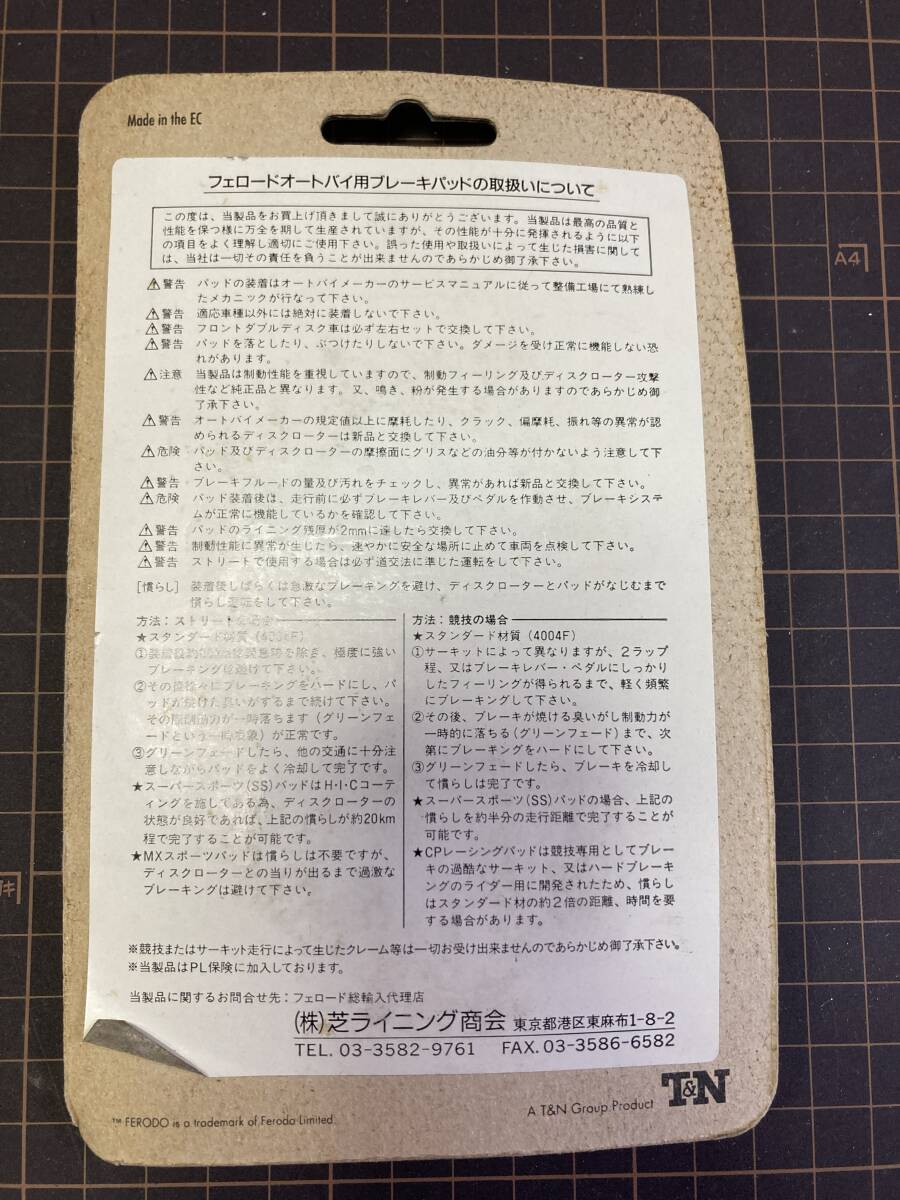 Made in the EC
フェロードオートバイ用ブレーキパッドの取扱いについて
この度は、当製品をお買上げ頂きまして誠にありがとうございます。当製品は最高の品質と
性能を保つ様に万全を期して生産されていますが、その性能が十分に発揮されるように以下
の項目をよく理解し適切にご使用下さい。誤った使用や取扱いによって生じた損害に関して
は、当社は一切その責任を負うことが出来ませんのであらかじめ御了承下さい。
⚠警告 パッドの装着はオートバイメーカーのサービスマニュアルに従って整備工場にて熟練し
たメカニックが行なって下さい。
⚠警告 適応車種以外には絶対に装着しないで下さい。
⚠警告 フロントダブルディスク車は必ず左右セットで交換して下さい。
⚠警告 パッドを落としたり、ぶつけたりしないで下さい。ダメージを受け正常に機能しない恐
れがあります。
⚠注意 当製品は制動性能を重視していますので、制動フィーリング及びディスクローター攻撃
性など純正品と異なります。又、鳴き、粉が発生する場合がありますのであらかじめ御
了承下さい。
⚠警告 オートバイメーカーの規定値以上に摩耗したり、クラック、偏摩耗、振れ等の異常が認
められるディスクローターは新品と交換して下さい。
⚠危険 パッド及びディスクローターの摩擦面にグリスなどの油分等が付かないよう注意して下
さい。
⚠警告 ブレーキフルードの量及び汚れをチェックし、異常があれば新品と交換して下さい。
⚠危険 パッド装着後は、走行前に必ずブレーキレバー及びペダルを作動させ、ブレーキシステ
ムが正常に機能しているかを確認して下さい。
⚠警告 パッドのライニング残厚が2mmに達したら交換して下さい。
⚠警告 制動性能に異常が生じたら、速やかに安全な場所に止めて車両を点検して下さい。
⚠警告 ストリートで使用する場合は必ず道交法に準じた運転をして下さい。
[慣らし] 装着後しばらくは急激なブレーキングを避け、ディスクローターとパッドがなじむまで
慣らし運転をして下さい。
方法：ストリートの場合
★スタンダード材質
を除き、極度に強い
ブレーキングは避けて下さい。
②その後徐々にブレーキングをハードにし、パ
ッドが焼けた臭いがするまで続けて下さい。
その際制動力が一時落ちます（グリーンフェ
ードという一時的現象）が正常です。
③グリーンフェードしたら、他の交通に十分注
意しながらパッドをよく冷却して完了です。
★スーパースポーツ(SS)パッドはH･I･Cコーテ
ィングを施してある為、ディスクローターの
状態が良好であれば、上記の慣らしが約20km
程で完了することが可能です。
★MXスポーツパッドは慣らしは不要ですが、
ディスクローターとの当りが出るまで過激な
ブレーキングは避けて下さい。
方法：競技の場合
★スタンダード材質（4004F）
①サーキットによって異なりますが、2ラップ
程、又はブレーキレバー・ペダルにしっかり
したフィーリングが得られるまで、軽く頻繁
にブレーキングして下さい。
②その後、ブレーキが焼ける臭いがし制動力が
一時的に落ちる（グリーンフェード）まで、次
第にブレーキングをハードにして下さい。
③グリーンフェードしたら、ブレーキを冷却し
て慣らしは完了です。
★スーパースポーツ(SS)パッドの場合、上記の
慣らしを約半分の走行距離で完了することが
可能です。
★CPレーシングパッドは競技専用としてブレー
キの過酷なサーキット、又はハードブレーキ
ングのライダー用に開発されたため、慣らし
はスタンダード材の約2倍の距離、時間を要
する場合があります。
※競技またはサーキット走行によって生じたクレーム等は一切お受け出来ませんのであらかじめ御了承下さい。
※当製品はPL保険に加入しております。
当製品に関するお問合せ先：フェロード総輸入代理店
(株)芝ライニング商会 東京都港区東麻布1-8-2
TEL. 03-3582-9761 FAX. 03-3586-6582
™ FERODO is a trademark of Ferodo Limited.
A T&N Group Product T&N
A4